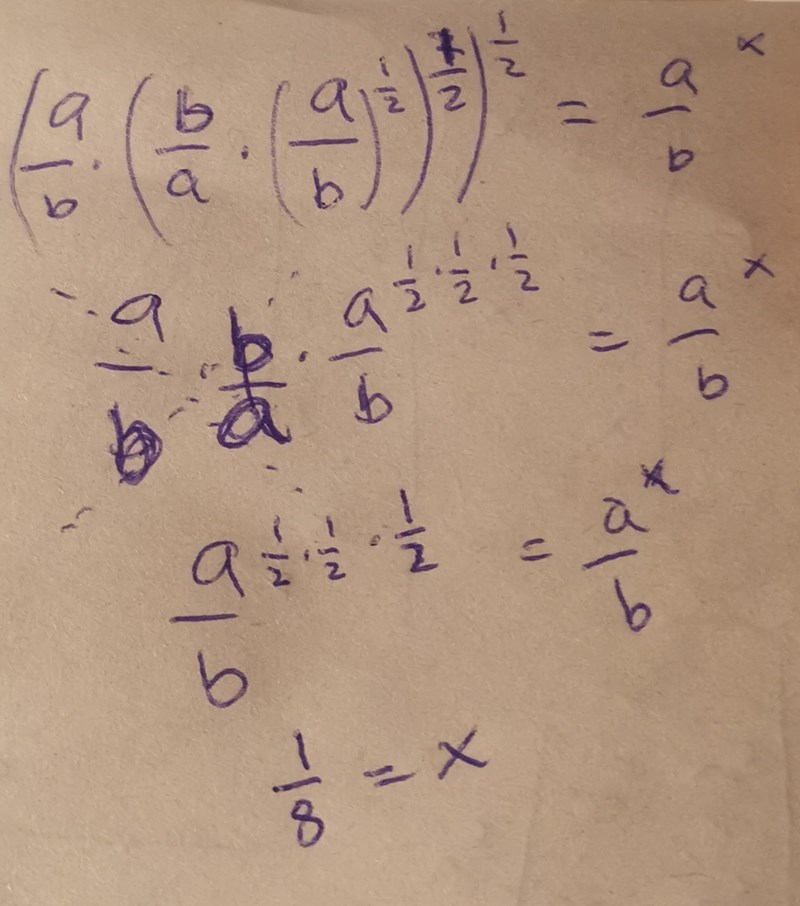 (a/b · (b/a · (a/b)^1/2)^1/2)^1/2 = a/b^x
a/b · b/a · a/b^1/2·1/2·1/2 = a/b^x
a/b^1/2·1/2·1/2 = a/b^x
1/8 = x